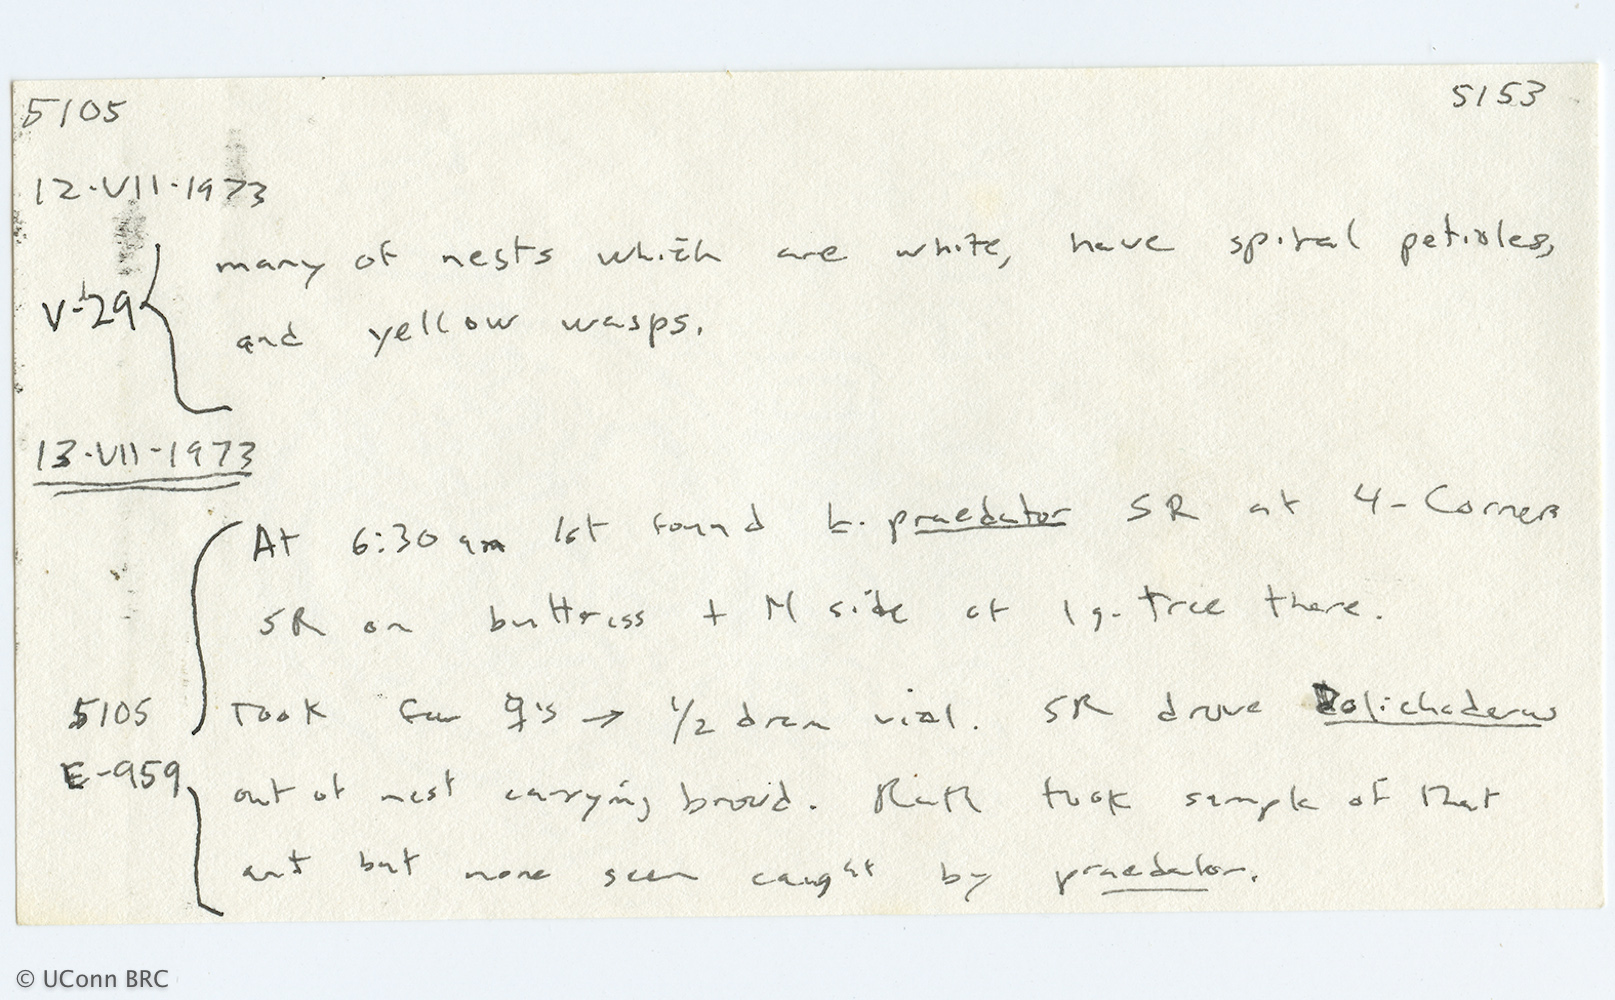 5105 5153
12·VII·1973
many of nests which are white, have spiral petioles,
V-29 and yellow wasps.
13·VII-1973
At 6:30 am 1st found E. praedator SR at 4-Corners
SR on buttress + N side of 1 g. tree there.
5105 Took few → 1/2 dram vial. SR drove Dolichoderus
E-959 out of nest carrying brood. Ruth took sample of that
ant but none seen caught by praedator.
© UConn BRC